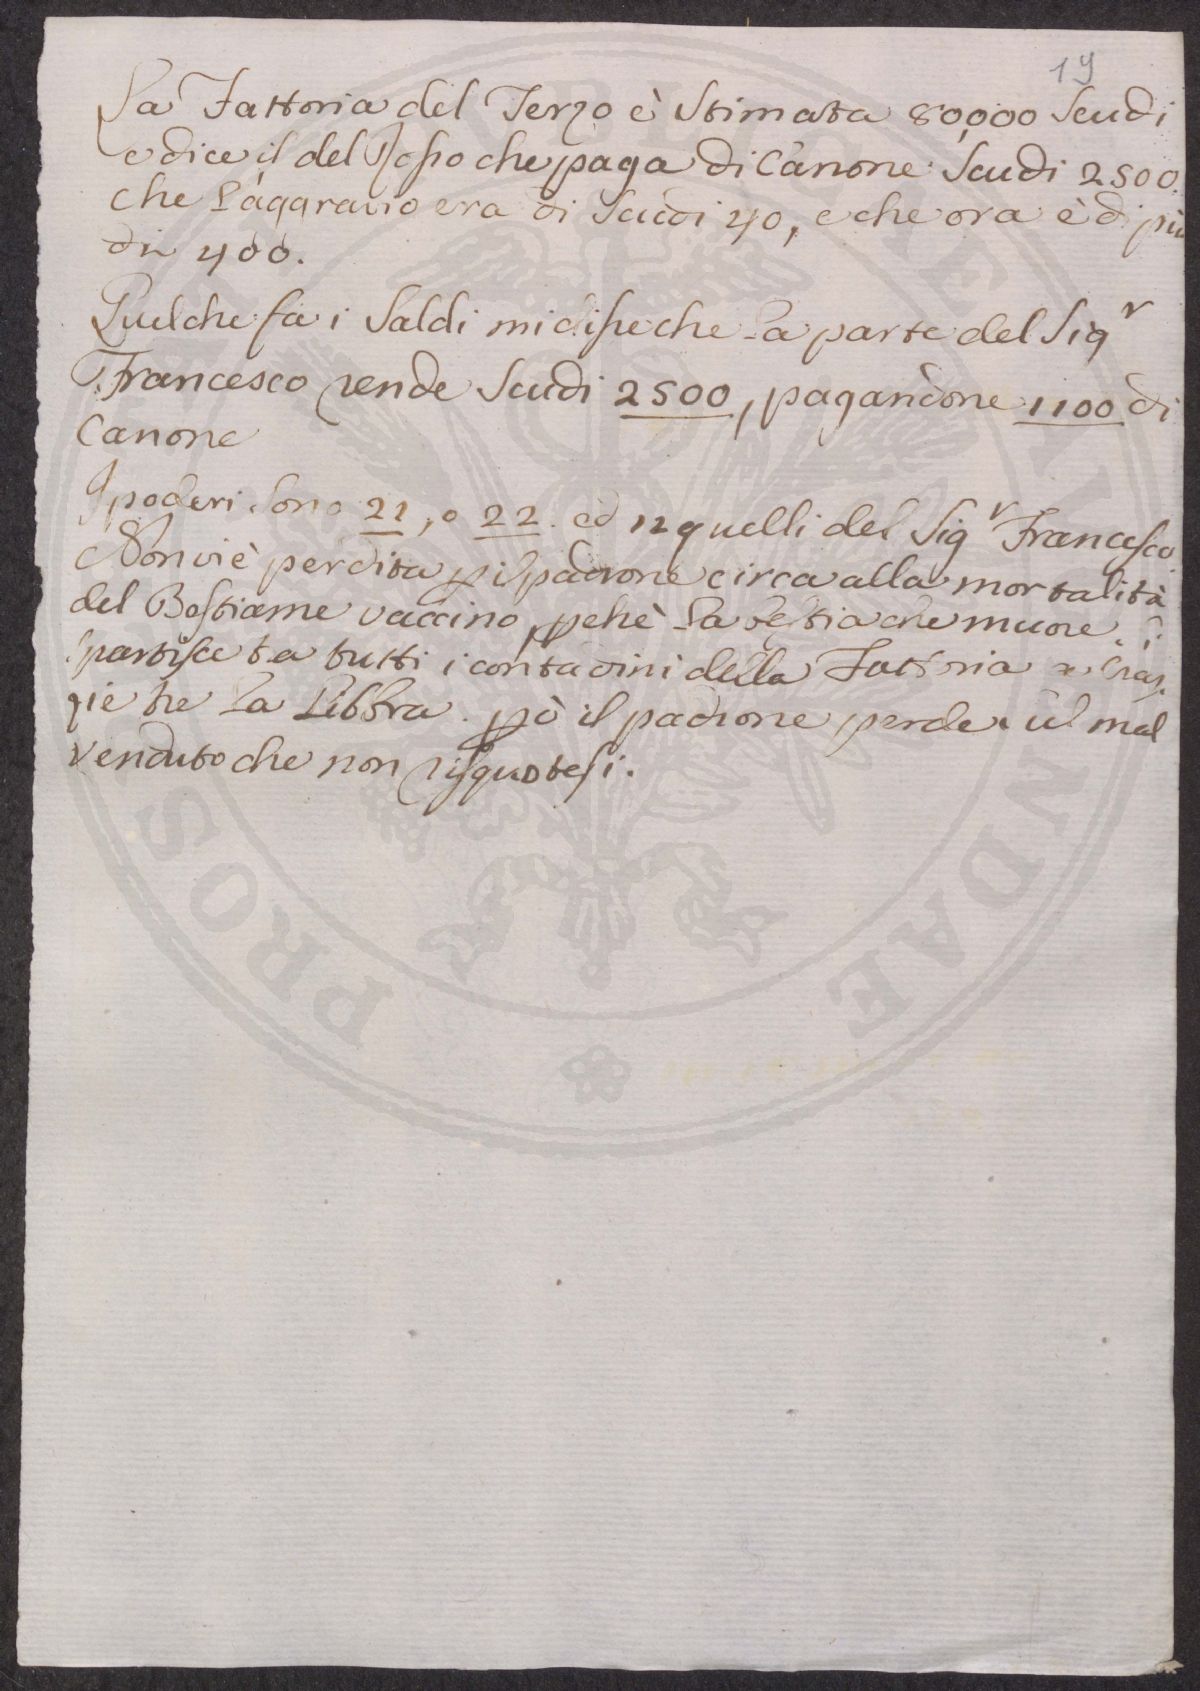 19
La Fattoria del Terzo è Stimata 80,000 Scudi
e dice il del Rosso che paga di Canone Scudi 2500.
che l'aggravio era di Scudi 40, e che ora è di più
di 400.
Quel che fà i Saldi mi disse che la parte del Sigr
Francesco rende Scudi 2500, pagandone 1100 di
Canone
I poderi sono 21, o 22. ed 12 quelli del Sigr Francesco
Non vi è perdita p il padrone circa alla mortalità
del Bestiame vaccino, pchè la bestia che muore si
spartisce tra tutti i contadini della Fattoria a Craz
zie tre la Libbra. pò il padrone perde il mal
venduto che non risquotesi.
PROS